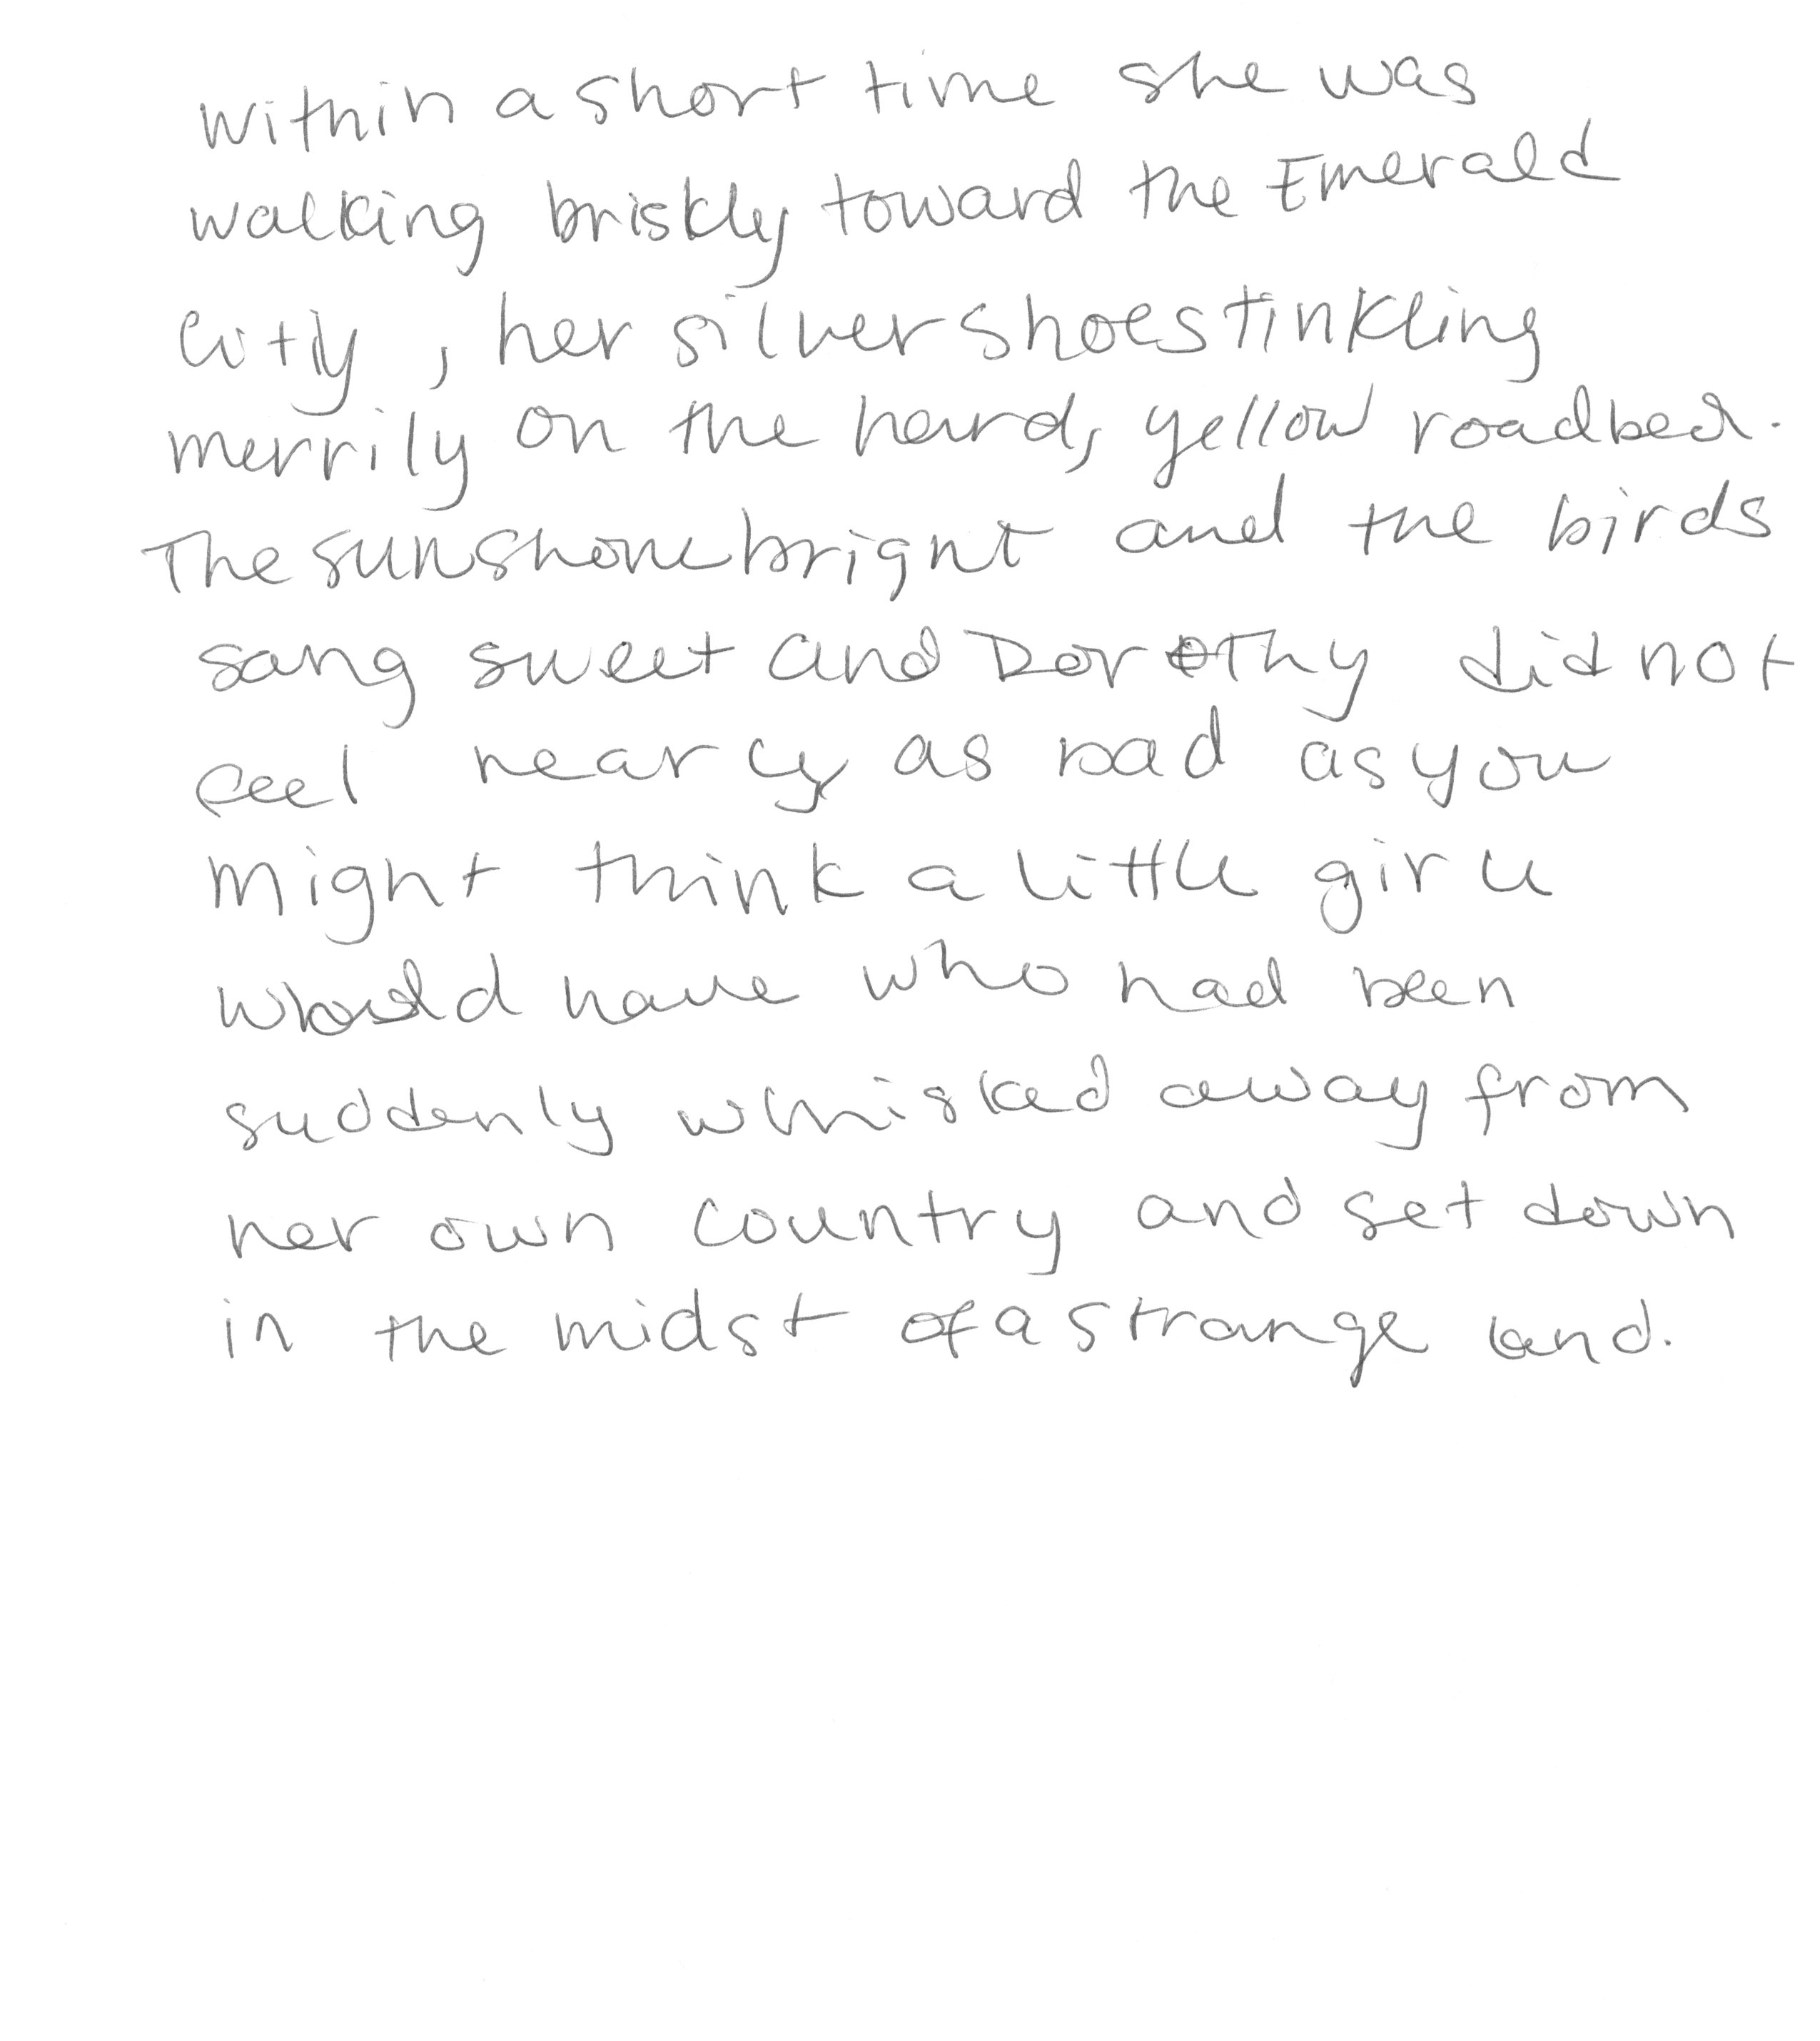 Within a short time she was
walking briskly toward the Emerald
City, her silver shoes tinkling
merrily on the hard, yellow roadbed.
The sun shone bright and the birds
sang sweet and Dorothy did not
feel nearly as bad as you
might think a little girl
would have who had been
suddenly whisked away from
her own country and set down
in the midst of a strange land.